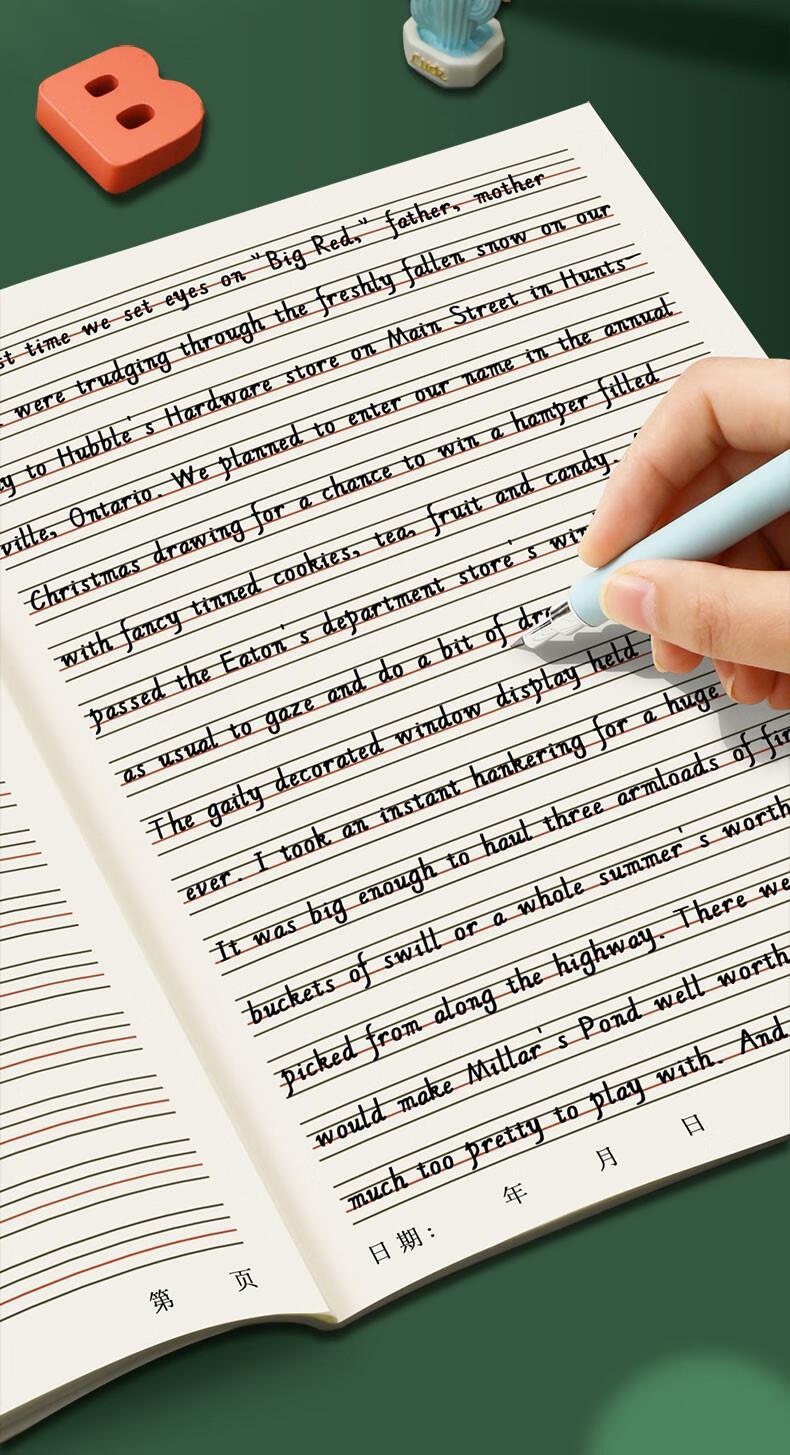 B
time we set eyes on "Big Red," father, mother
were trudging through the freshly fallen snow on our
to Hubble's Hardware store on Main Street in Hunts-
ville, Ontario. We planned to enter our name in the annual
Christmas drawing for a chance to win a hamper filled
with fancy tinned cookies, tea, fruit and candy.
passed the Eaton's department store's
as usual to gaze and do a bit of
The gaily decorated window display held
ever. I took an instant hankering for a huge
It was big enough to haul three armloads of
buckets of swill or a whole summer's worth
picked from along the highway. There
would make Millar's Pond well worth
much too pretty to play with. And
日期： 年 月 日
第 页